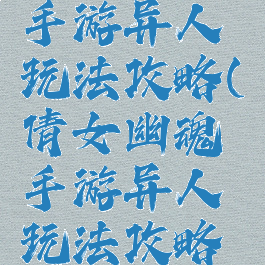 手游异人
玩法攻略(
倩女幽魂
手游异人
玩法攻略